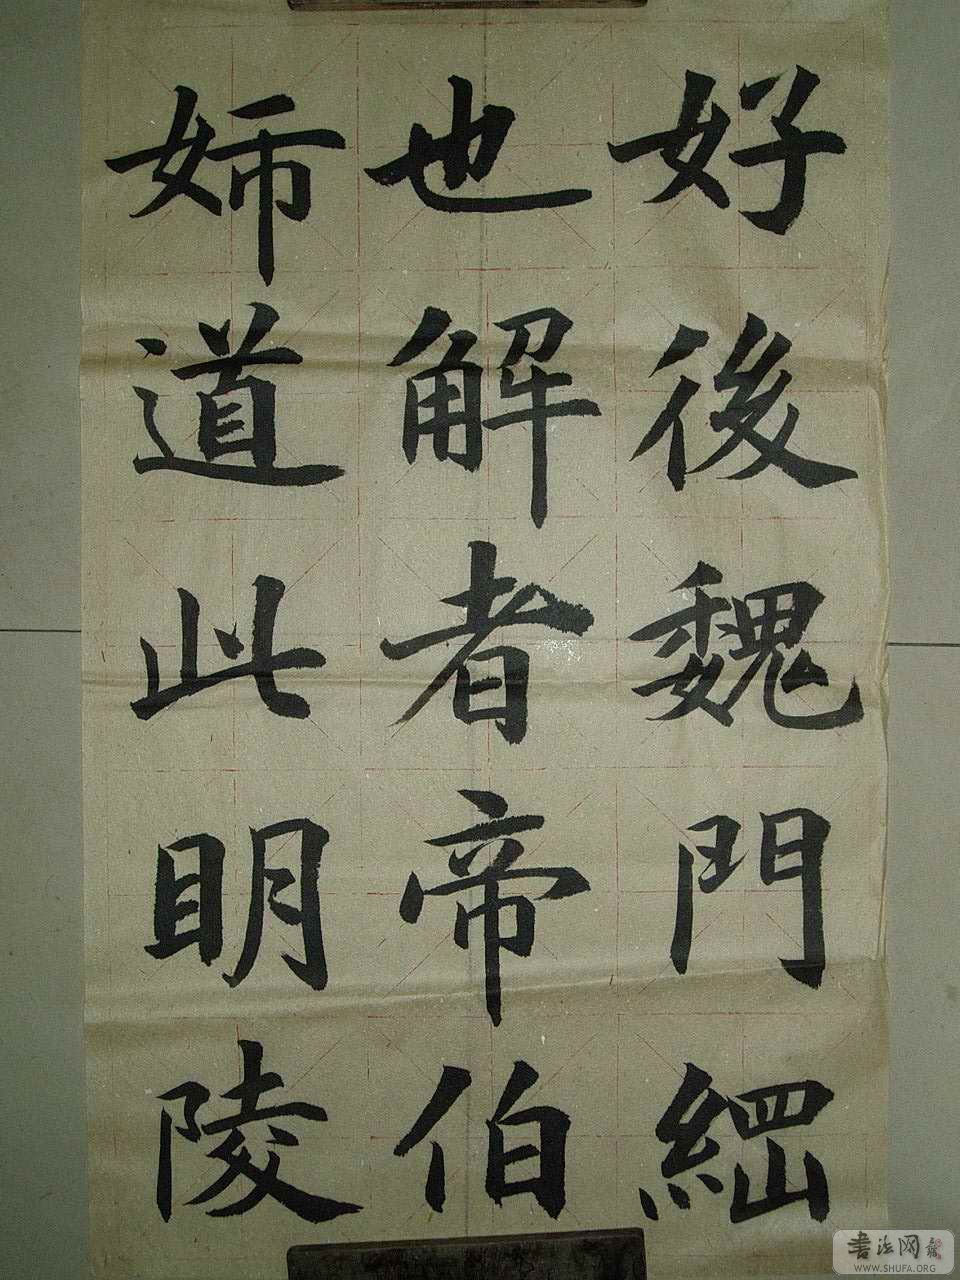 好後魏門綱
也解者帝伯
姉道此明陵
書法网
WWW.SHUFA.ORG